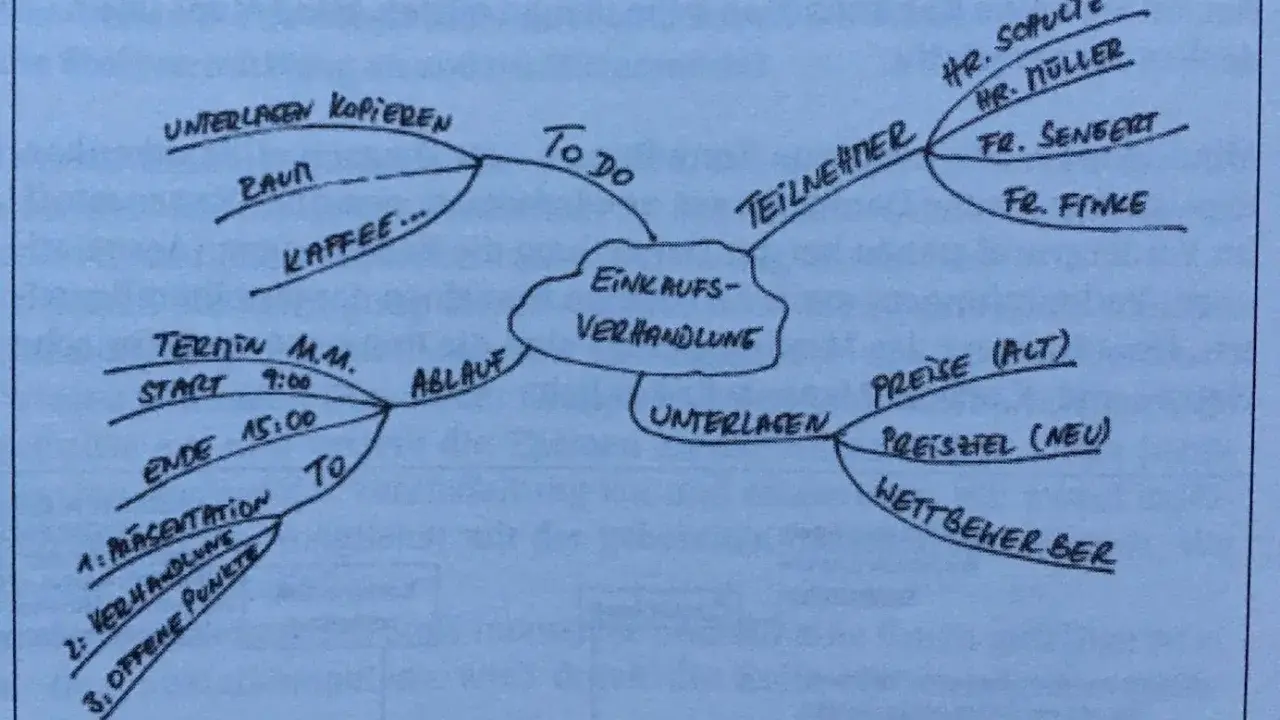 EINKAUFS-
VERHANDLUNG
TO DO
UNTERLAGEN KOPIEREN
RAUM
KAFFEE...
TEILNEHMER
HR. SCHULTE
HR. MÜLLER
FR. SENGERT
FR. FINKE
ABLAUF
TERMIN M.M.
START 9:00
ENDE 15:00
TO
1: PRÄSENTATION
2: VERHANDLUNG
3: OFFENE PUNKTE
UNTERLAGEN
PREISE (ALT)
PREISZIEL (NEU)
WETTBEWERBER